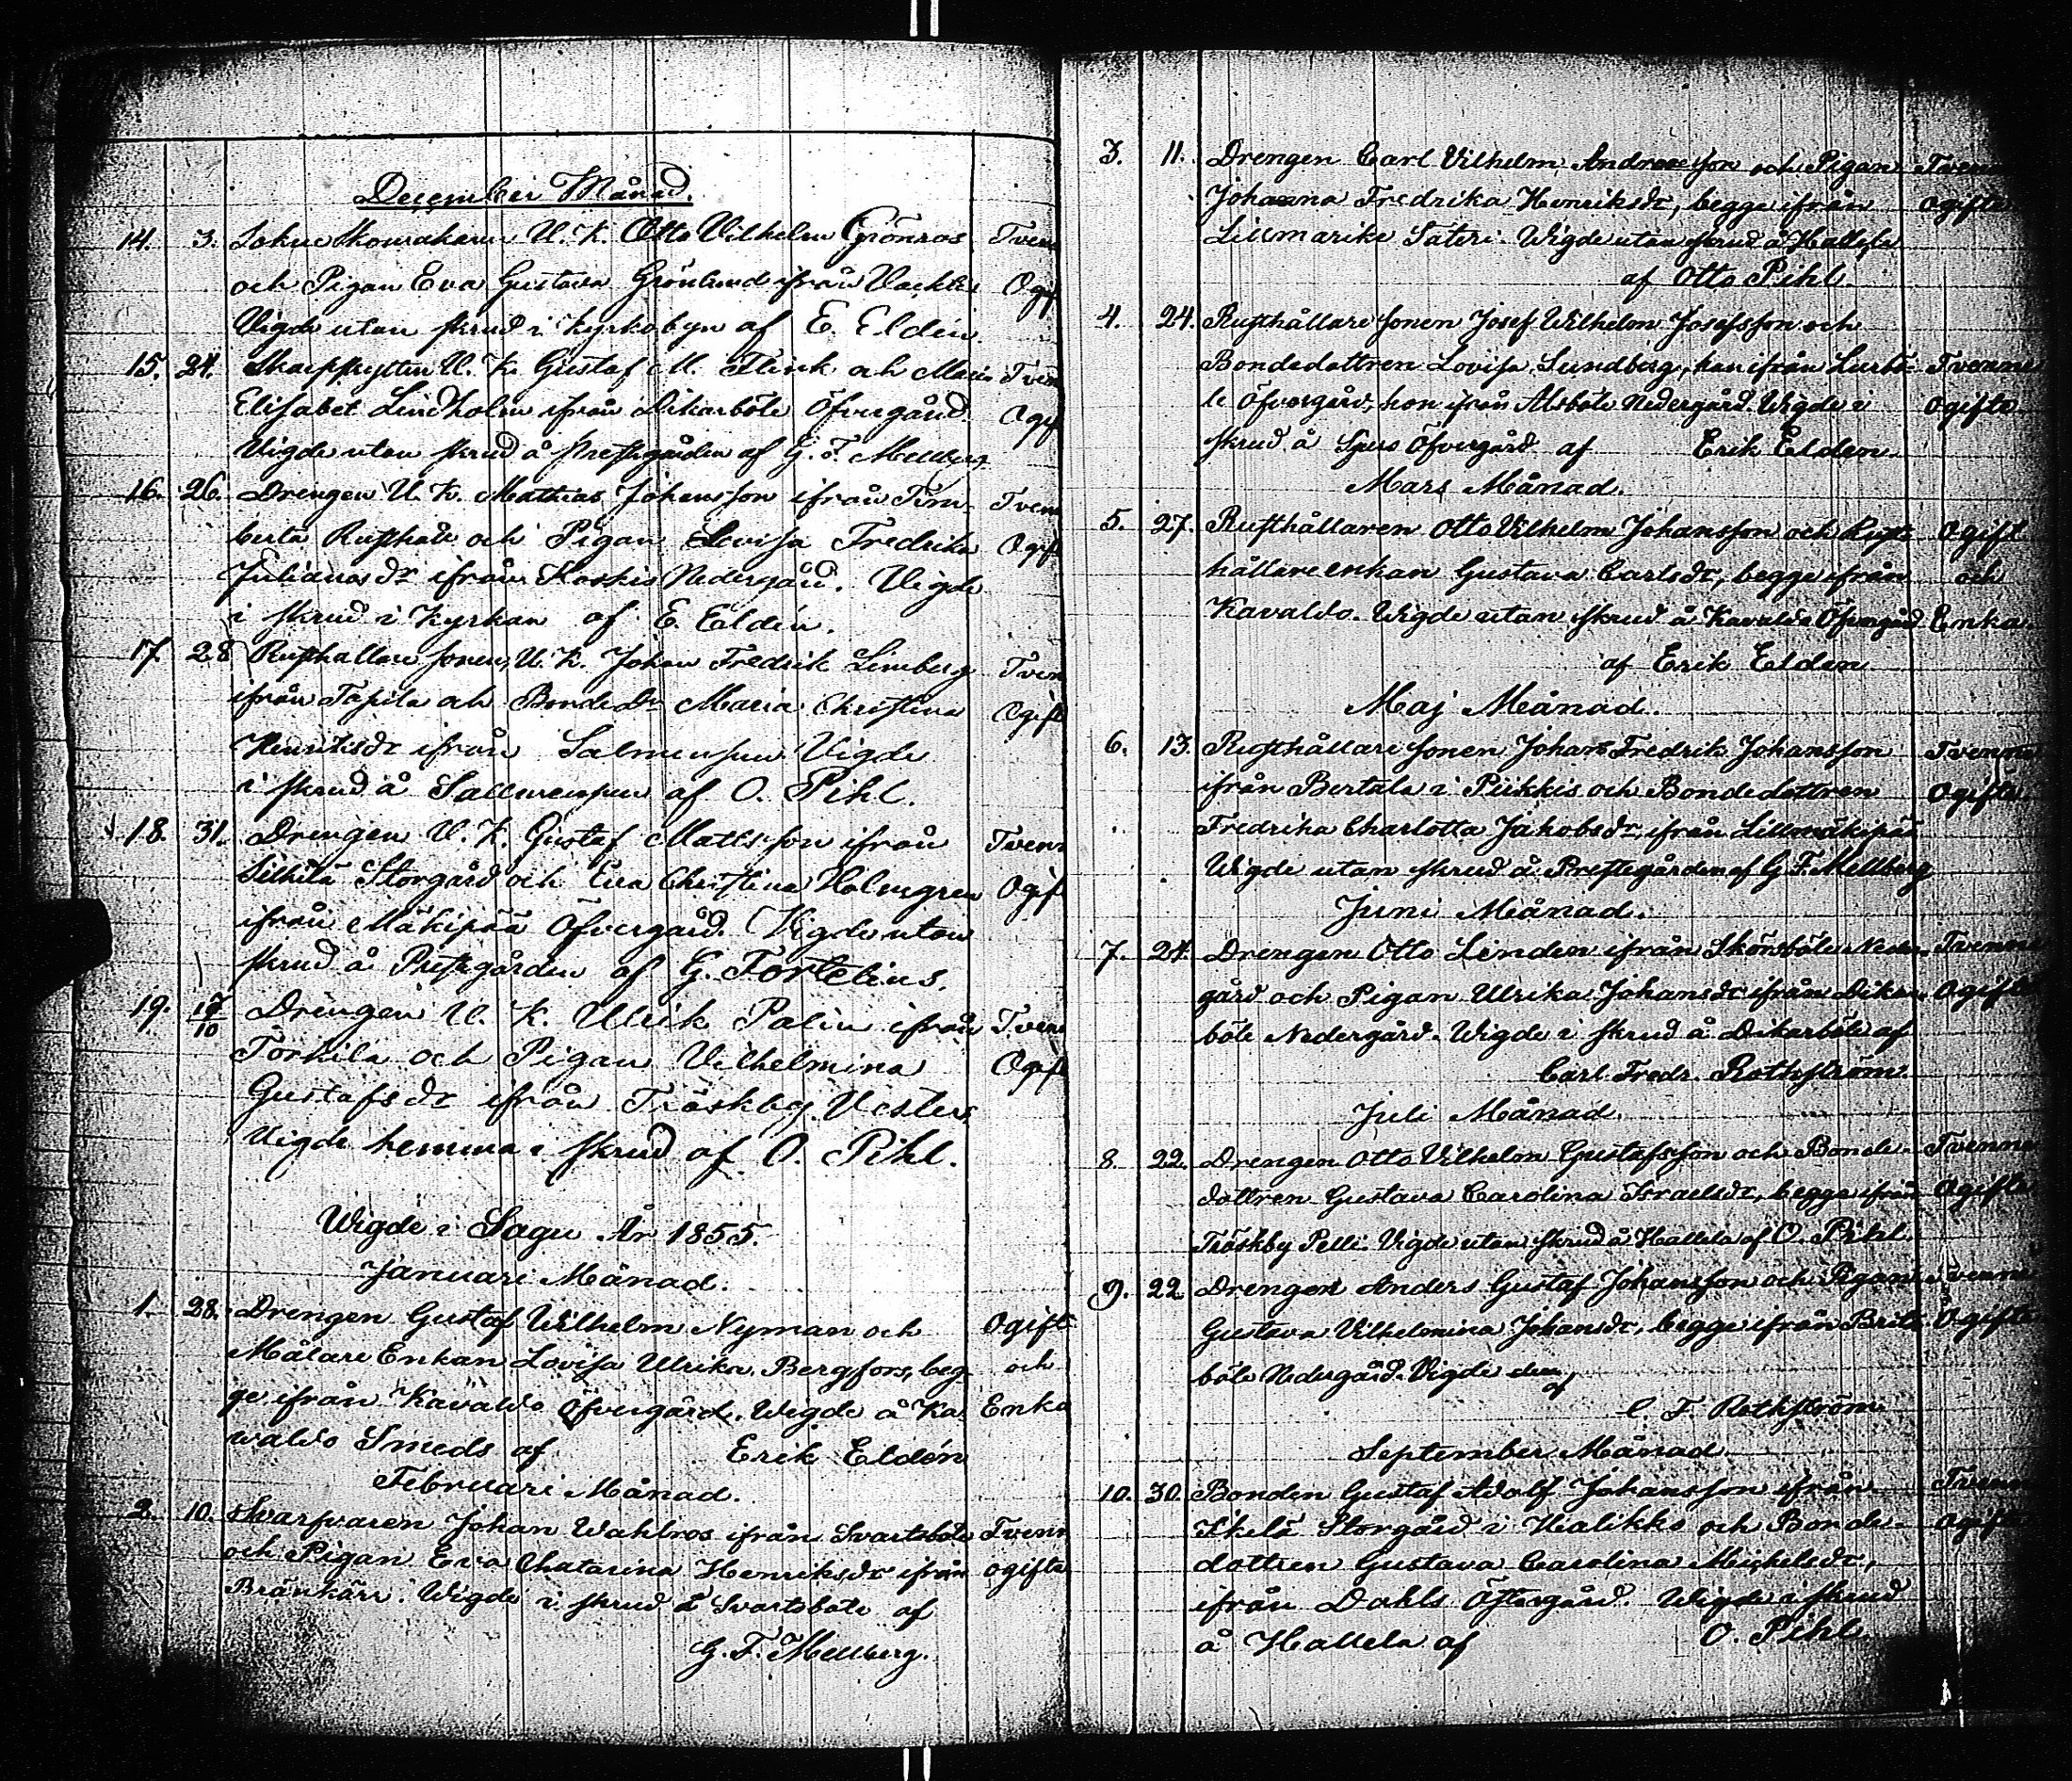 December Månad.
14. 3. Sockne Skomakaren U. K. Otto Vilhelm Grönros Tven
och Pigan Eva Gustava Grönlund ifrån Ogif
Vigde utan skrud i Kyrkobyn af E. Eldén.
15. 24. U. K. Gustaf M. Flink och Maria Tven
Elisabet Lindholm ifrån Dikarböle Öfvergård. Ogif
Vigde utan skrud å Prestegården af G. F. Mellberg
16. 26. Drengen U. K. Mathias Johansson ifrån Tim- Tven
berla Rusthåll och Pigan Lovisa Fredrika Ogif
Julianasdr ifrån Koskis Nedergård. Vigde
i skrud i Kyrkan af E. Eldén.
17 28 Rusthållare sonen, U. K. Johan Fredrik Limberg Tven
ifrån Tapila och Bonde Dr Maria Christina Ogift
Henriksdr ifrån Salmensuu Vigde
i skrud å Sallmensuu af O. Pihl.
18. 31. Drengen U. K. Gustaf Mattsson ifrån Tven
Storgård och Eva Christina Holmgren Ogif
ifrån Mäkipää Öfvergård. Vigde utan
skrud å Prestegården af G. Fortelius.
19. 17/10 Drengen U. K. Ulrik Palin ifrån Tven
Torkila och Pigan Vilhelmina Ogif
Gustafsdr ifrån Träskby Vesters
Vigde hemma i skrud af O. Pihl.
Wigde i Sagu År 1855.
Januari Månad.
1. 28. Drengen Gustaf Wilhelm Nyman och Ogift
Målare Enkan Lovisa Ulrika Bergfors, beg- och
ge ifrån Kavaldo Öfvergård. Wigde å Ka- Enka
valdo Smeds af Erik Eldén
Februari Månad.
2. 10. Skarpvaren Johan Wahlros ifrån Svartsböle Tvenn
och Pigan Eva Chatarina Henriksdr ifrån ogifte
Bränkärr. Wigde i skrud å Svartsböle af
G. F. Mellberg.
3. 11. Drengen Carl Vilhelm Andersson och Pigan Tvenn
Johanna Fredrika Henriksdr, begge ifrån ogifte
Lillmarike Säteri. Wigde utan skrud å Hallela
af Otto Pihl.
4. 24. Rusthållare sonen Josef Wilhelm Josefsson och
Bondedottren Lovisa Lundberg, han ifrån Lurbö- Tvenne
le Öfvergård, hon ifrån Alsböle Nedergård. Wigde i ogifte
skrud å Öfvergård af Erik Elden
Mars Månad.
5. 27. Rusthållaren Otto Vilhelm Johansson och Rust- Ogift
hållareenkan Gustava Carlsdr, begge ifrån och
Kavaldo. Wigde utan skrud å Kavaldo Öfvergård Enka.
af Erik Elden
Maj Månad.
6. 13. Rusthållare sonen Johan Fredrik Johansson Tvenne
ifrån Bertala i Piikkis och Bondedottren Ogifte
Fredrika Charlotta Jakobsdr, ifrån Lillmäkipää
Wigde utan skrud å Prestegården af G. F. Mellberg
Juni Månad.
7. 24. Drengen Otto Linden ifrån Skörsböle Neder- Tvenne
gård och Pigan Ulrika Johansdr ifrån Dikar- Ogifte
böle Nedergård. Wigde i skrud å Dikarböle af
Carl Fredr. Rothström.
Juli Månad.
8. 22. Drengen Otto Vilhelm Gustafsson och Bonde- Tvenne
dottren Gustava Carolina Israelsdr, begge ifrån Ogifte
Träskby Pelli. Vigde utan skrud å Hallela af O. Pihl.
9. 22 Drengen Anders Gustaf Johansson och Pigan Tvenne
Gustava Vilhelmina Johansdr, begge ifrån Brits- Ogifte
böle Nedergård. Vigde af
C. F. Rothström
September Månad
10. 30. Bonden Gustaf Adolf Johansson ifrån Tvenn
Ikelä Storgård i Halikko och Bonde- ogifte
dottren Gustava Carolina Michelsdr,
ifrån Dahls Östergård. Wigde i skrud
å Hallela af O. Pihl.